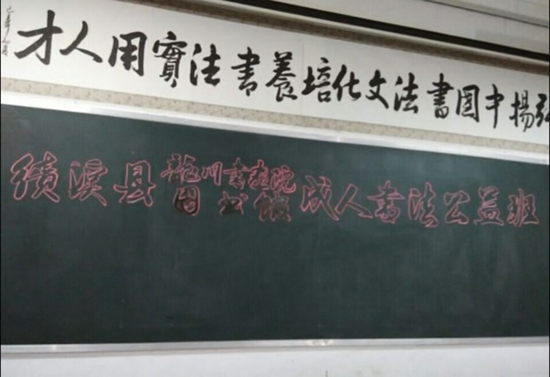 弘揚中國書法文化培養書法實用人才
績溪县
龍川書画院
图书馆
成人書法公益班